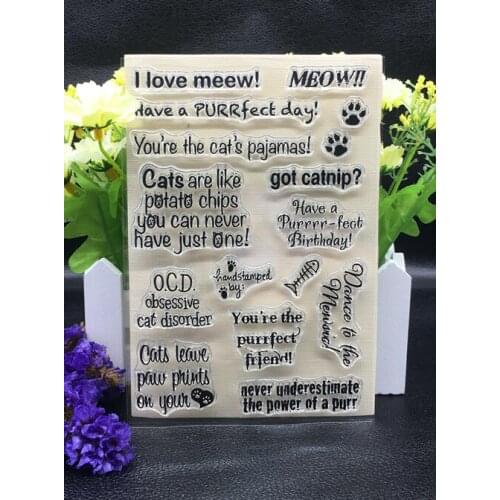 I love meew!
MEOW!!
Have a PURRfect day!
You're the cat's pajamas!
Cats are like
potato chips
you can never
have just one!
got catnip?
Have a
Purrrr-fect
Birthday!
O.C.D.
obsessive
cat disorder
handstamped
by:
You're the
purrfect
friend!
Dance to the
Mewsic!
Cats leave
paw prints
on your
never underestimate
the power of a purr